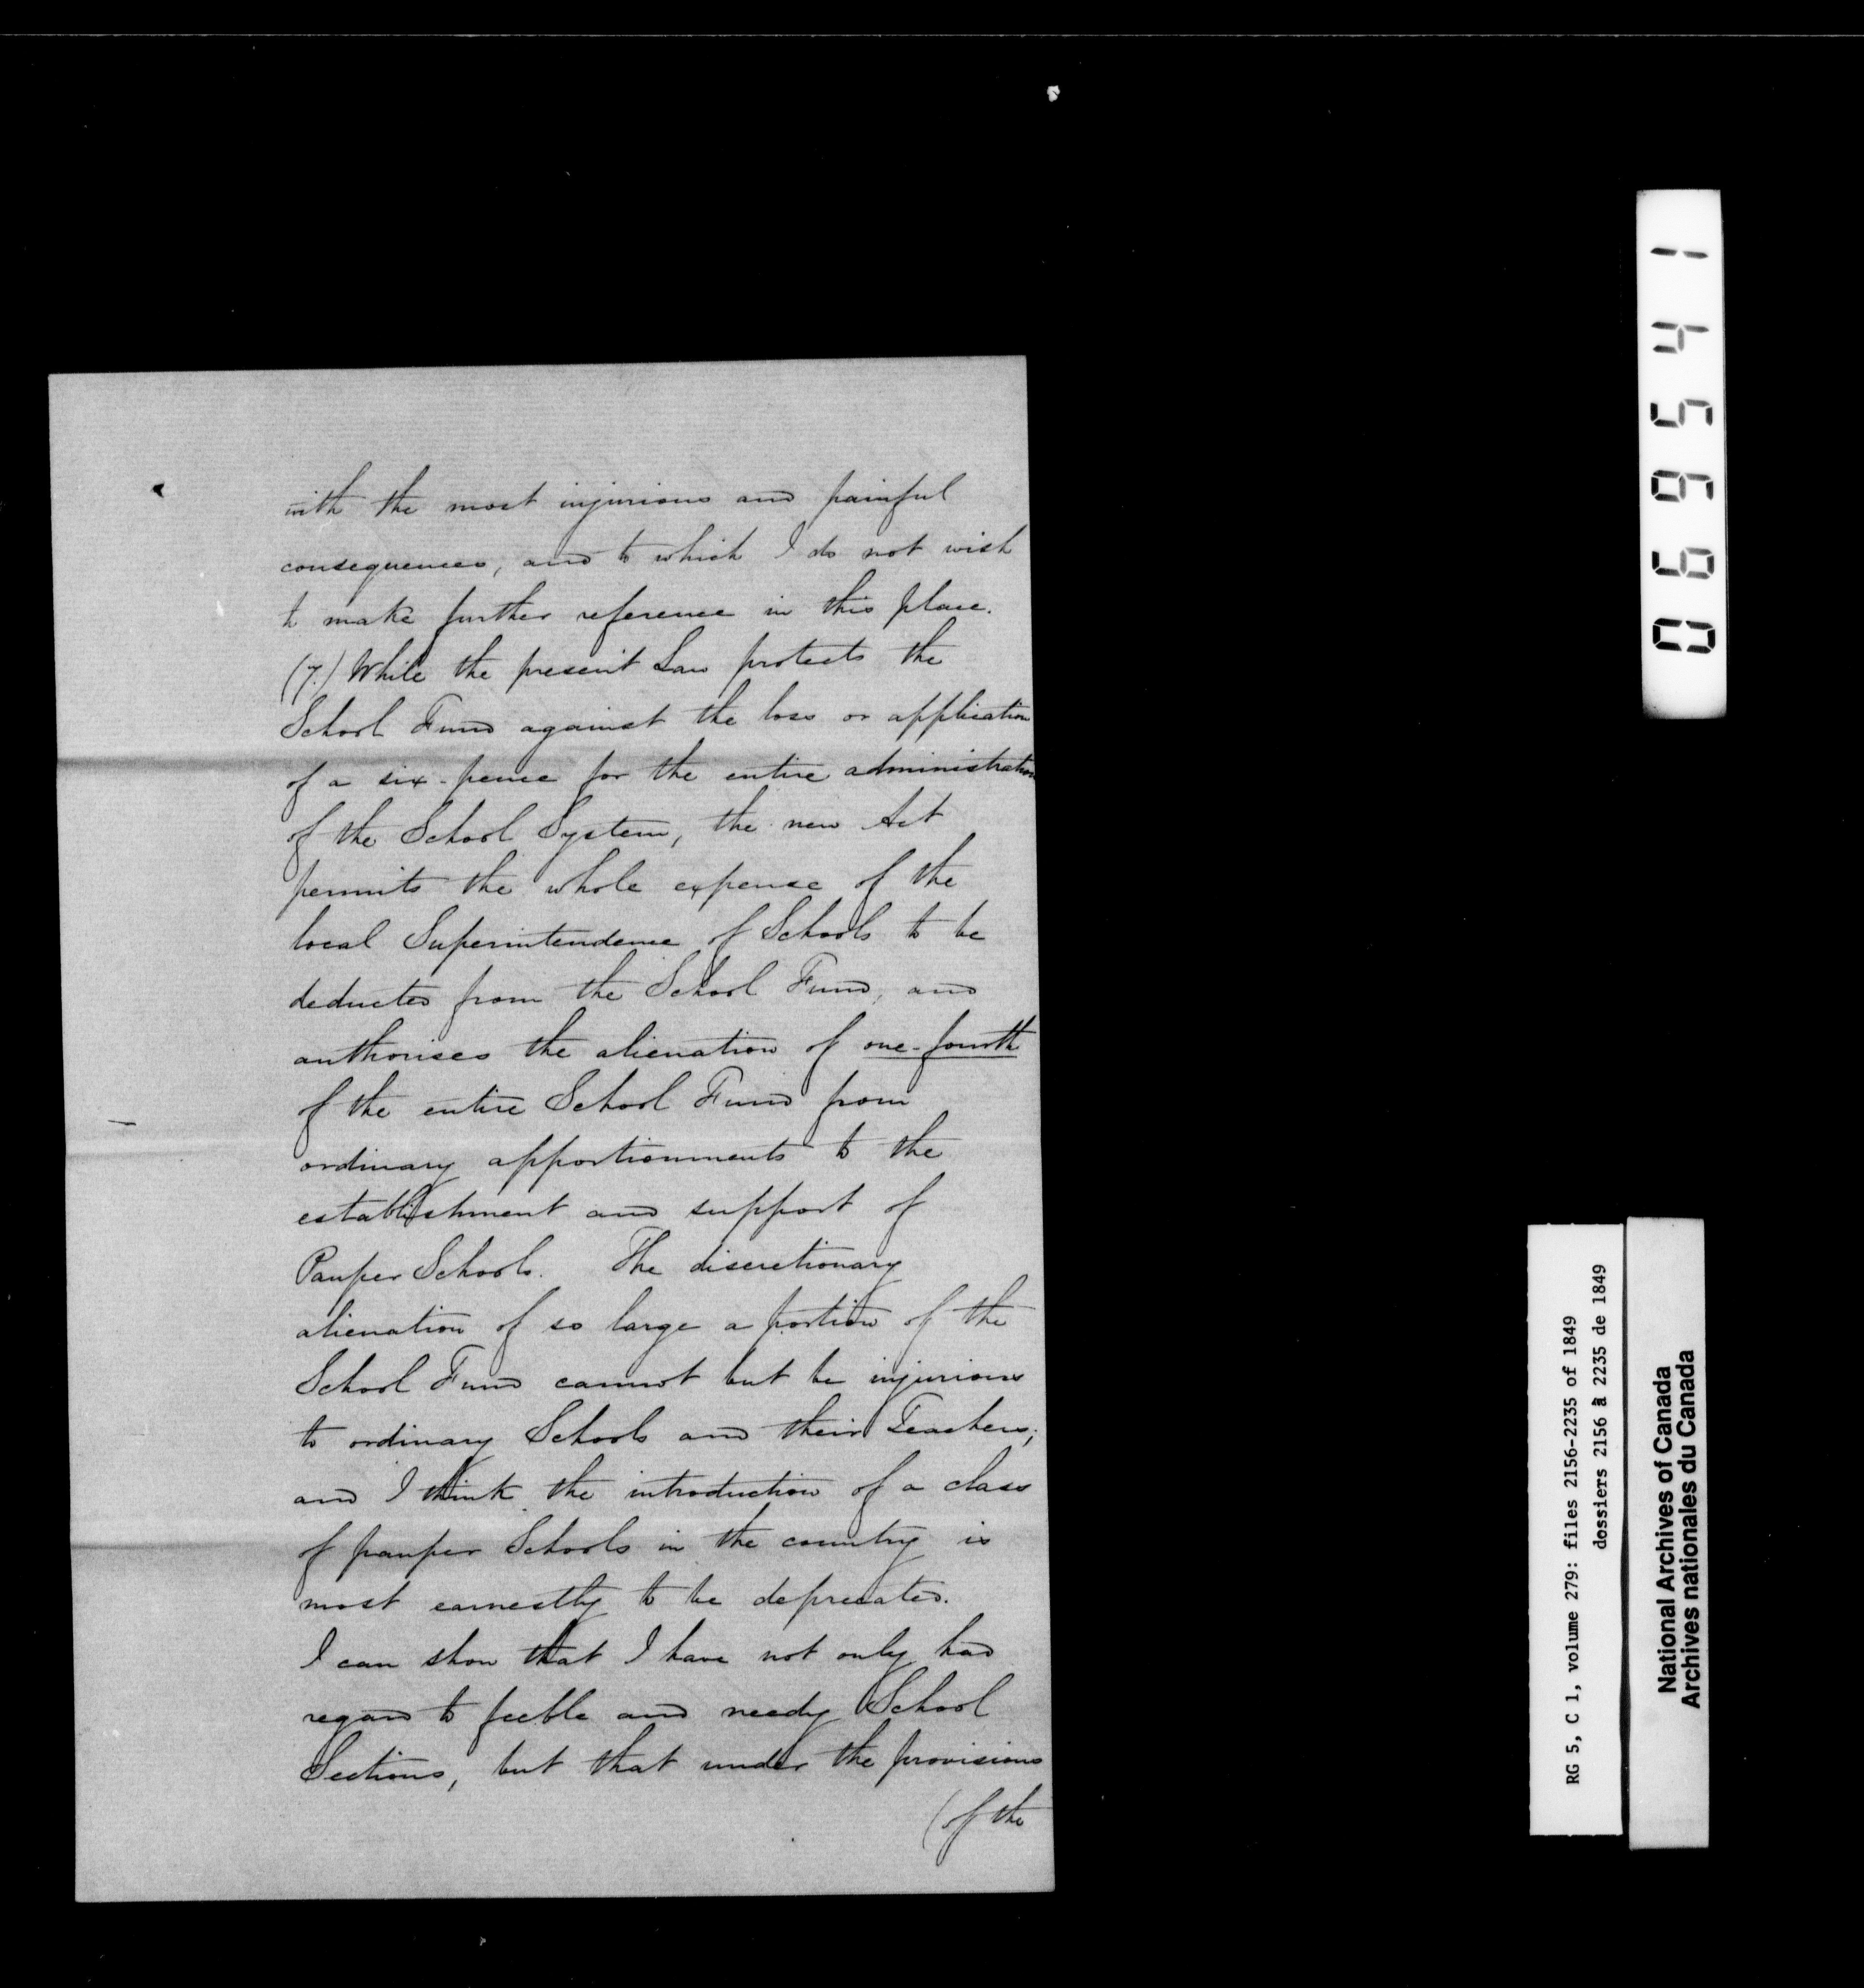 with the most injurious and painful
consequences, and to which I do not wish
to make further reference in this place.
(7.) While the present Law protects the
School Fund against the loss or application
of a six-pence for the entire administration
of the School System, the new Act
permits the whole expense of the
local Superintendence of Schools to be
deducted from the School Fund, and
authorises the alienation of one-fourth
of the entire School Fund from
ordinary apportionments to the
establishment and support of
Pauper Schools. The discretionary
alienation of so large a portion of the
School Fund cannot but be injurious
to ordinary Schools and their Teachers;
and I think the introduction of a class
of pauper Schools in the country is
most earnestly to be deprecated.
I can show that I have not only had
regard to feeble and needy School
Sections, but that under the provisions
(of the
069541
RG 5, C 1, volume 279: files 2156-2235 of 1849
dossiers 2156 à 2235 de 1849
National Archives of Canada
Archives nationales du Canada